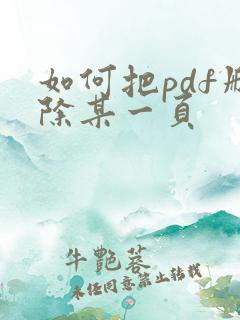 如何把pdf删
除某一页
牛艷蓉
未经同意禁止转载